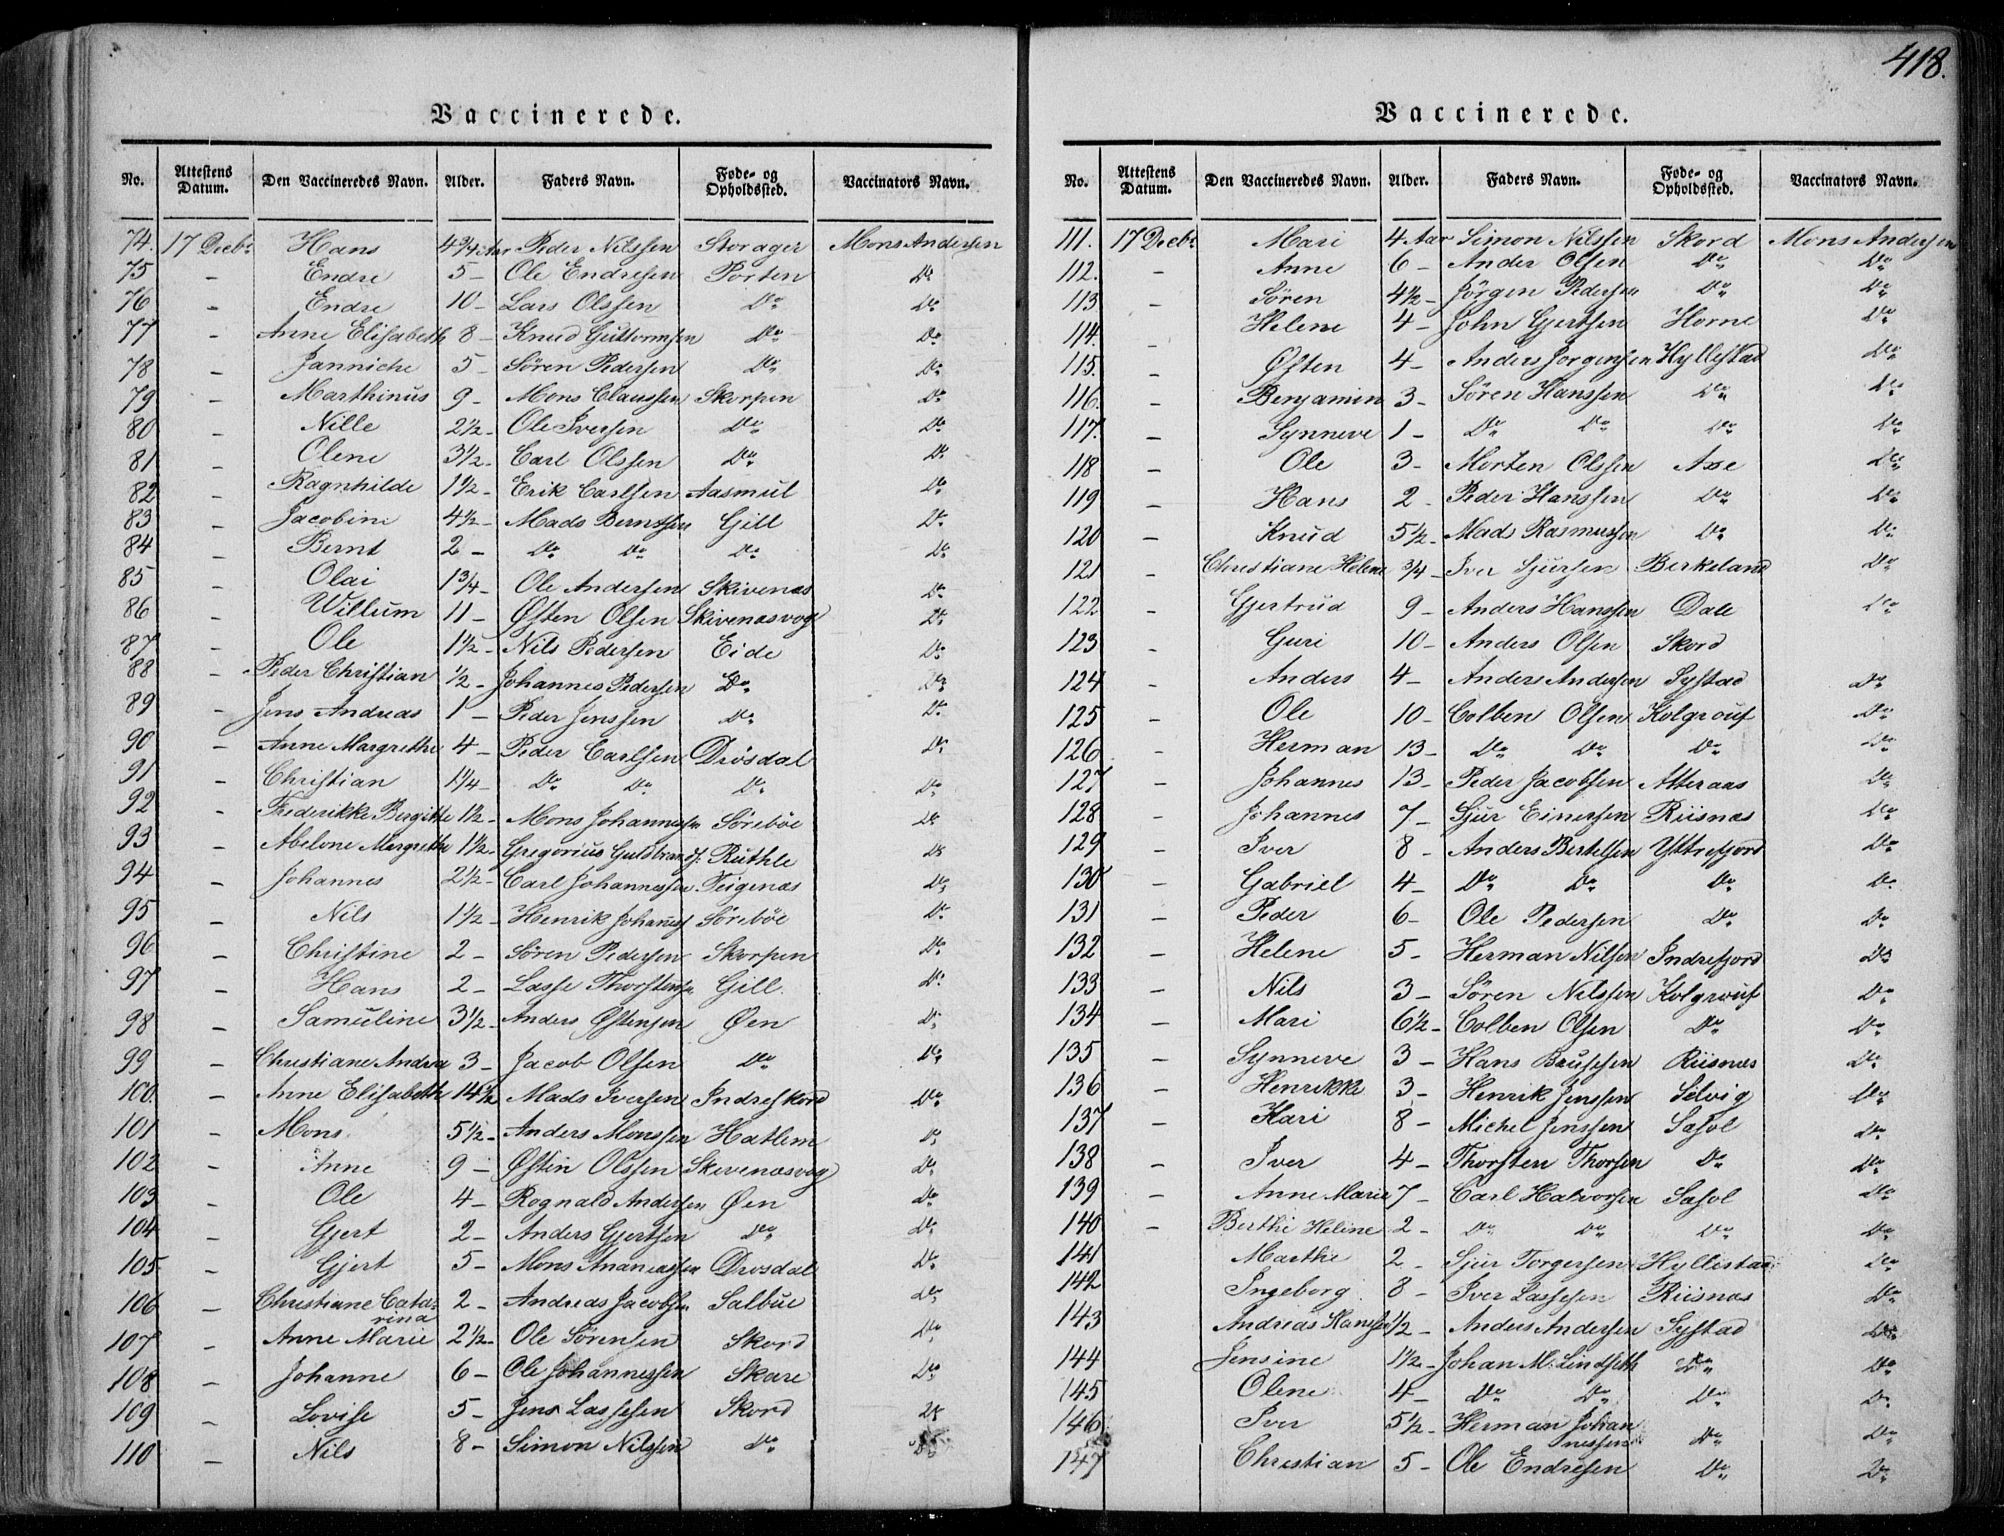 418.
Vaccinerede.
No. Attestens Datum. Den Vaccineredes Navn. Alder. Faders Navn. Føde- og Opholdssted. Vaccinators Navn.
74. 17 Decbr Hans 4 3/4 Aar Peder Nilssen Storager Mons Andersen
75 - Endre 5 - Ole Endresen Porten Do
76 - Endre 10 - Lars Olssen Do Do
77 - Anne Elisabeth 8 - Knud Guttormsen Do Do
78 - Janniche 5 - Sören Pedersen Do Do
79 - Marthinus 9 - Mons Claussen Skorpen Do
80 - Nille 2 1/2 - Ole Iversen Do Do
81 - Olene 3 1/2 - Carl Olssen Do Do
82 - Ragnhilde 1 1/2 - Erik Carlsen Aasmul Do
83 - Jacobine 4 1/2 - Mads Berntsen Gill Do
84 - Bernt 2 - Do Do Do Do
85 - Olai 1 3/4 - Ole Andersen Skivenæs Do
86 - Willum 11 - Østen Olsen Skivenæsvog Do
87 - Ole 1 1/2 - Nils Pedersen Eide Do
88 - Peder Christian 1/2 - Johannes Pedersen Do Do
89 - Jens Andreas 1 - Peder Jenssen Do Do
90 - Anne Margrethe 4 - Peder Carlsen Drösdal Do
91 - Christian 1 1/4 - Do Do Do Do
92 - Frederikke Bergitte 1 1/2 - Mons Johannessen Söreböe Do
93 - Abelone Margrethe 1 1/2 - Gregorius Guldbrands. Ruthle Do
94 - Johannes 2 1/2 - Carl Johannessen Teigenæs Do
95 - Nils 1 1/2 - Henrik Johaness Söreböe Do
96 - Christine 2 - Sören Pedersen Skorpen Do
97 - Hans 2 - Lasse Thorstense Gill. Do
98 - Samuline 3 1/2 - Anders Østensen Øen Do
99 - Christiane Andrea 3 - Jacob Olsen Do Do
100. - Anne Elisabeth 14 1/2 Mads Iversen Indreskord Do
101 - Mons. 5 1/2 - Anders Monssen Hatlem Do
102 - Anne 9 - Østin Olssen Skivenæsvog Do
103 - Ole 4 - Rognald Andersen Øen Do
104 - Gjert 2 - Anders Gjertsen Do Do
105. - Gjert 5 - Mons Ananiassen Drösdal Do
106 - Christiane Cata-
rina 2 - Andreas Jacobsen Salbue Do
107 - Anne Marie 2 1/2 - Ole Sörensen Skord Do
108 - Johanne 6 - Ole Johannessen Skare Do
109 - Lovise 5 - Jens Lassesen Skord Do
110 - Nils 8 - Simon Nilssen Do Do
Vaccinerede.
No. Attestens Datum. Den Vaccineredes Navn. Alder. Faders Navn. Føde- og Opholdssted. Vaccinators Navn.
111. 17 Decbr Mari 4 Aar Simon Nilssen Skord Mons Andersen
112. - Anne 6 - Ander Olsen Do Do
113 - Sören 4 1/2 - Jörgen Pedersen Do Do
114. - Helene 4 - John Gjertsen Horne Do
115. - Østen 4 - Anders Jorgensen Hyllestad Do
116. - Benjamin 3 - Sören Hanssen Do Do
117. - Synneve 1 - Do Do Do Do
118 - Ole 3 - Morten Olssen Axe Do
119 - Hans 2 - Peder Hanssen Do Do
120 - Knud 5 1/2 - Mads Rasmussen Do Do
121 - Christiane Helene 3/4 - Iver Sjursen Berkeland Do
122 - Gjertrud 9 - Anders Hanssen Dale Do
123 - Guri 10 - Anders Olsen Skord
124 - Anders 4 - Anders Andersen Systad Do
125 - Ole 10 - Colben Olsen Kolgrouf Do
126 - Herman 13 - Do Do Do Do
127 - Johannes 13 - Peder Jacobsen Atteraas Do
128 - Johannes 7 - Sjur Einersen Riisnæs Do
129 - Iver 8 - Anders Bertelsen Yttrefjord Do
130 - Gabriel 4 - Do Do Do Do
131 - Peder 6 - Ole Pedersen Do Do
132 - Helene 5 - Herman Nilsen Indrefjord Do
133 - Nils 3 - Sören Nilssen Kolgrouf Do
134 - Mari 6 1/2 - Colben Olsen Do Do
135 - Synneve 3 - Hans Brusesen Riisnæs Do
136 - Henrikke 3 - Henrik Jenssen Selvig Do
137 - Kari 8 - Michel Jenssen Sasol Do
138 - Iver 4 - Thorsten Thorsen Do Do
139 - Anne Marie 7 - Carl Halvorsen Sasol Do
140 - Berthe Helene 2 - Do Do Do Do
141 Marthe 2 - Sjur Torgersen Hyllestad Do
142 Ingeborg 8 - Iver Lassesen Riisnæs Do
143 Andreas Hansen 1/2 - Anders Andersen Systad Do
144 Jensine 1 1/2 - Johan M. Lindseth Do Do
145 Olene 4 - Do Do Do Do
146 Iver 5 1/2 - Herman Johan
nessen Do Do
147 Christian 5 - Ole Endresen Do Do